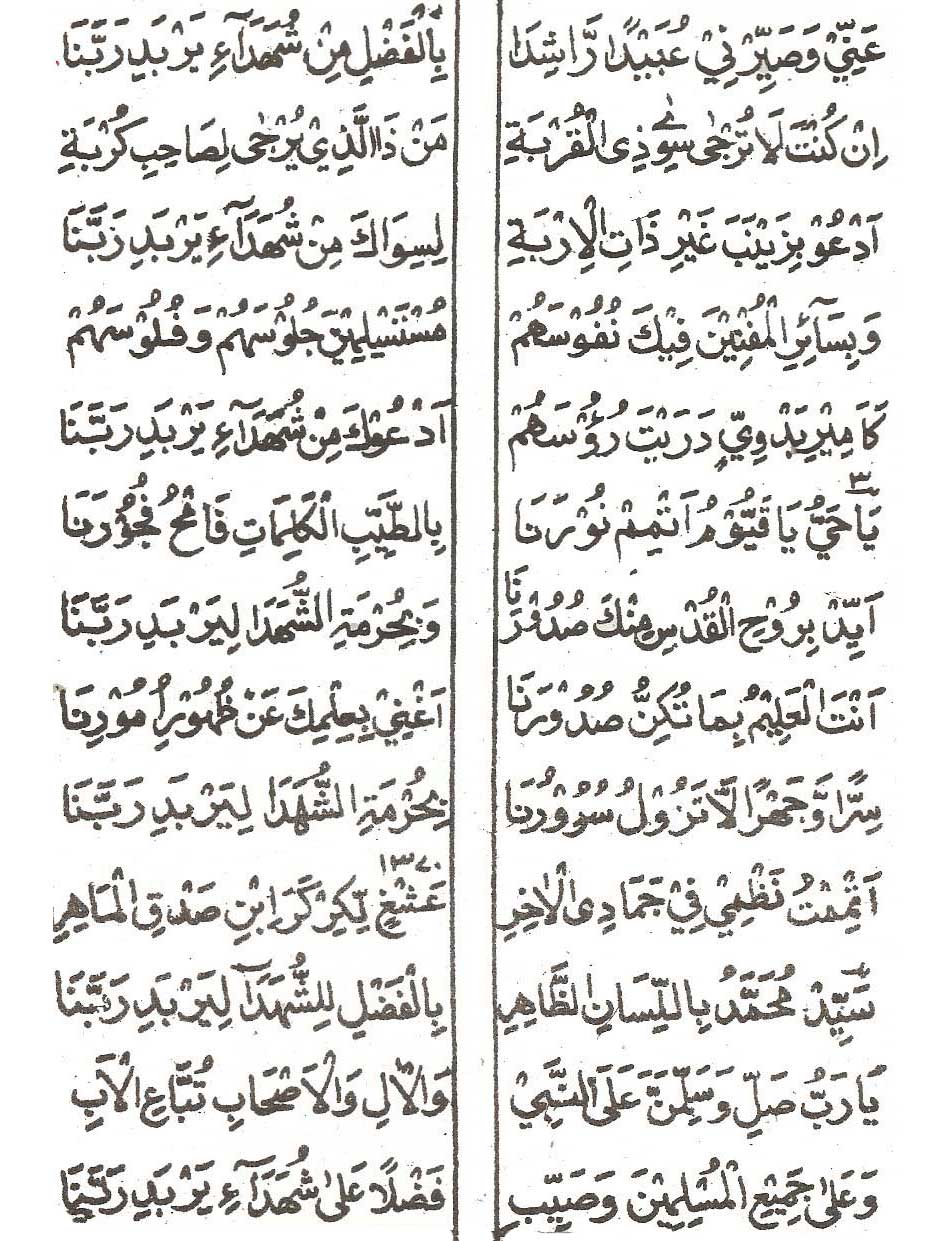 عَنِّيْ وَصَيِّرْنِيْ عُبَيْدًا رَّاشِدَا بِالْفَضْلِ مِنْ شُهَدَآءِ يَرْبَدِ رَبَّنَا
اِنْ كُنْتَ لَا تُرْجٰى سِوٰى ذِى الْقُرْبَةِ مَنْ ذَا الَّذِيْ يُرْجٰى لِصَاحِبِ كُرْبَةِ
اَدْعُوْ بِزَيْنَبَ غَيْرِ ذَاتِ الْاِرْبَةِ لِسِوَاكَ مِنْ شُهَدَآءِ يَرْبَدِ رَبَّنَا
وَبِسَآئِرِ الْمُفْنِيْنَ فِيْكَ نُفُوْسَهُمْ مُسْتَسْلِمِيْنَ جُلُوْسَهُمْ وَفُلُوْسَهُمْ
كَامِيْرِ بَدْوِيٍّ دَرَيْتَ رُؤُسَهُمْ اَدْعُوْكَ مِنْ شُهَدَآءِ يَرْبَدِ رَبَّنَا
يَا حَيُّ يَا قَيُّوْمُ اَتْمِمْ نُوْرَنَا ٣ بِالطَّيِّبِ الْكَلِمَاتِ فَامْحُ فُجُوْرَنَا
اَيِّدْ بِرُوْحِ الْقُدْسِ مِنْكَ صُدُوْرَنَا وَبِحُرْمَةِ الشُّهَدَا لِيَرْبَدِ رَبَّنَا
اَنْتَ الْعَلِيْمُ بِمَا تُكِنُّ صُدُوْرَنَا اَغْنِيْ بِعِلْمِكَ عَنْ ظُهُوْرِ اُمُوْرِنَا
سِرًّا وَّجَهْرًا لَّا تَزُوْلُ سُرُوْرُنَا بِحُرْمَةِ الشُّهَدَا لِيَرْبَدِ رَبَّنَا
اَتْمَمْتُ نَظْمِيْ فِيْ جَمَادِى الْاٰخِرِ عَشْغٍ ١٣٧٠ لِّكِرْكَرَ ابْنِ صَدْقِ الْمَاهِرِ
سَيِّدْ مُحَمَّدُ بِاللِّسَانِ الظَّاهِرِ بِالْفَضْلِ لِلشُّهَدَآ لِيَرْبَدِ رَبَّنَا
يَا رَبُّ صَلِّ وَسَلِّمَنَّ عَلَى النَّبِيْ وَالْاٰلِ وَالْاَصْحَابِ تُبَّاعِ الْاَبِ
وَعَلٰى جَمِيْعِ الْمُسْلِمِيْنَ وَصَيِّبِ فَضْلًا عَلٰى شُهَدَآءِ يَرْبَدِ رَبَّنَا